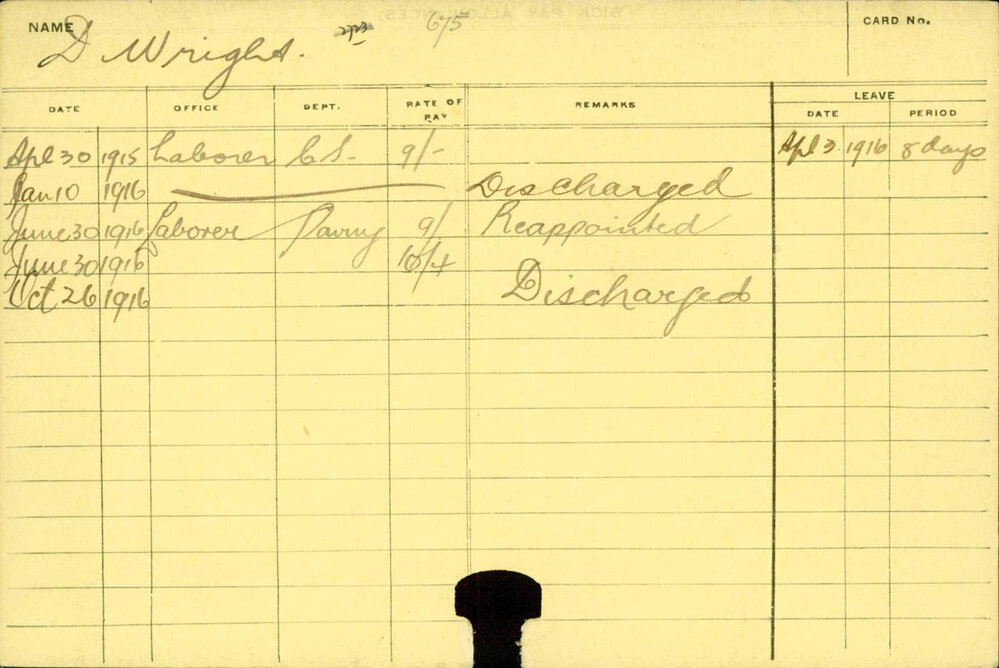 NAME D Wright. 675 CARD No.
DATE OFFICE DEPT. RATE OF PAY REMARKS LEAVE
DATE PERIOD
Apl 30 1915 Laborer C.S. 9/- Apl 3 1916 8 days
Jan 10 1916 Discharged
June 30 1916 Laborer Paving 9/ Reappointed
June 30 1916 10/4
Oct 26 1916 Discharged